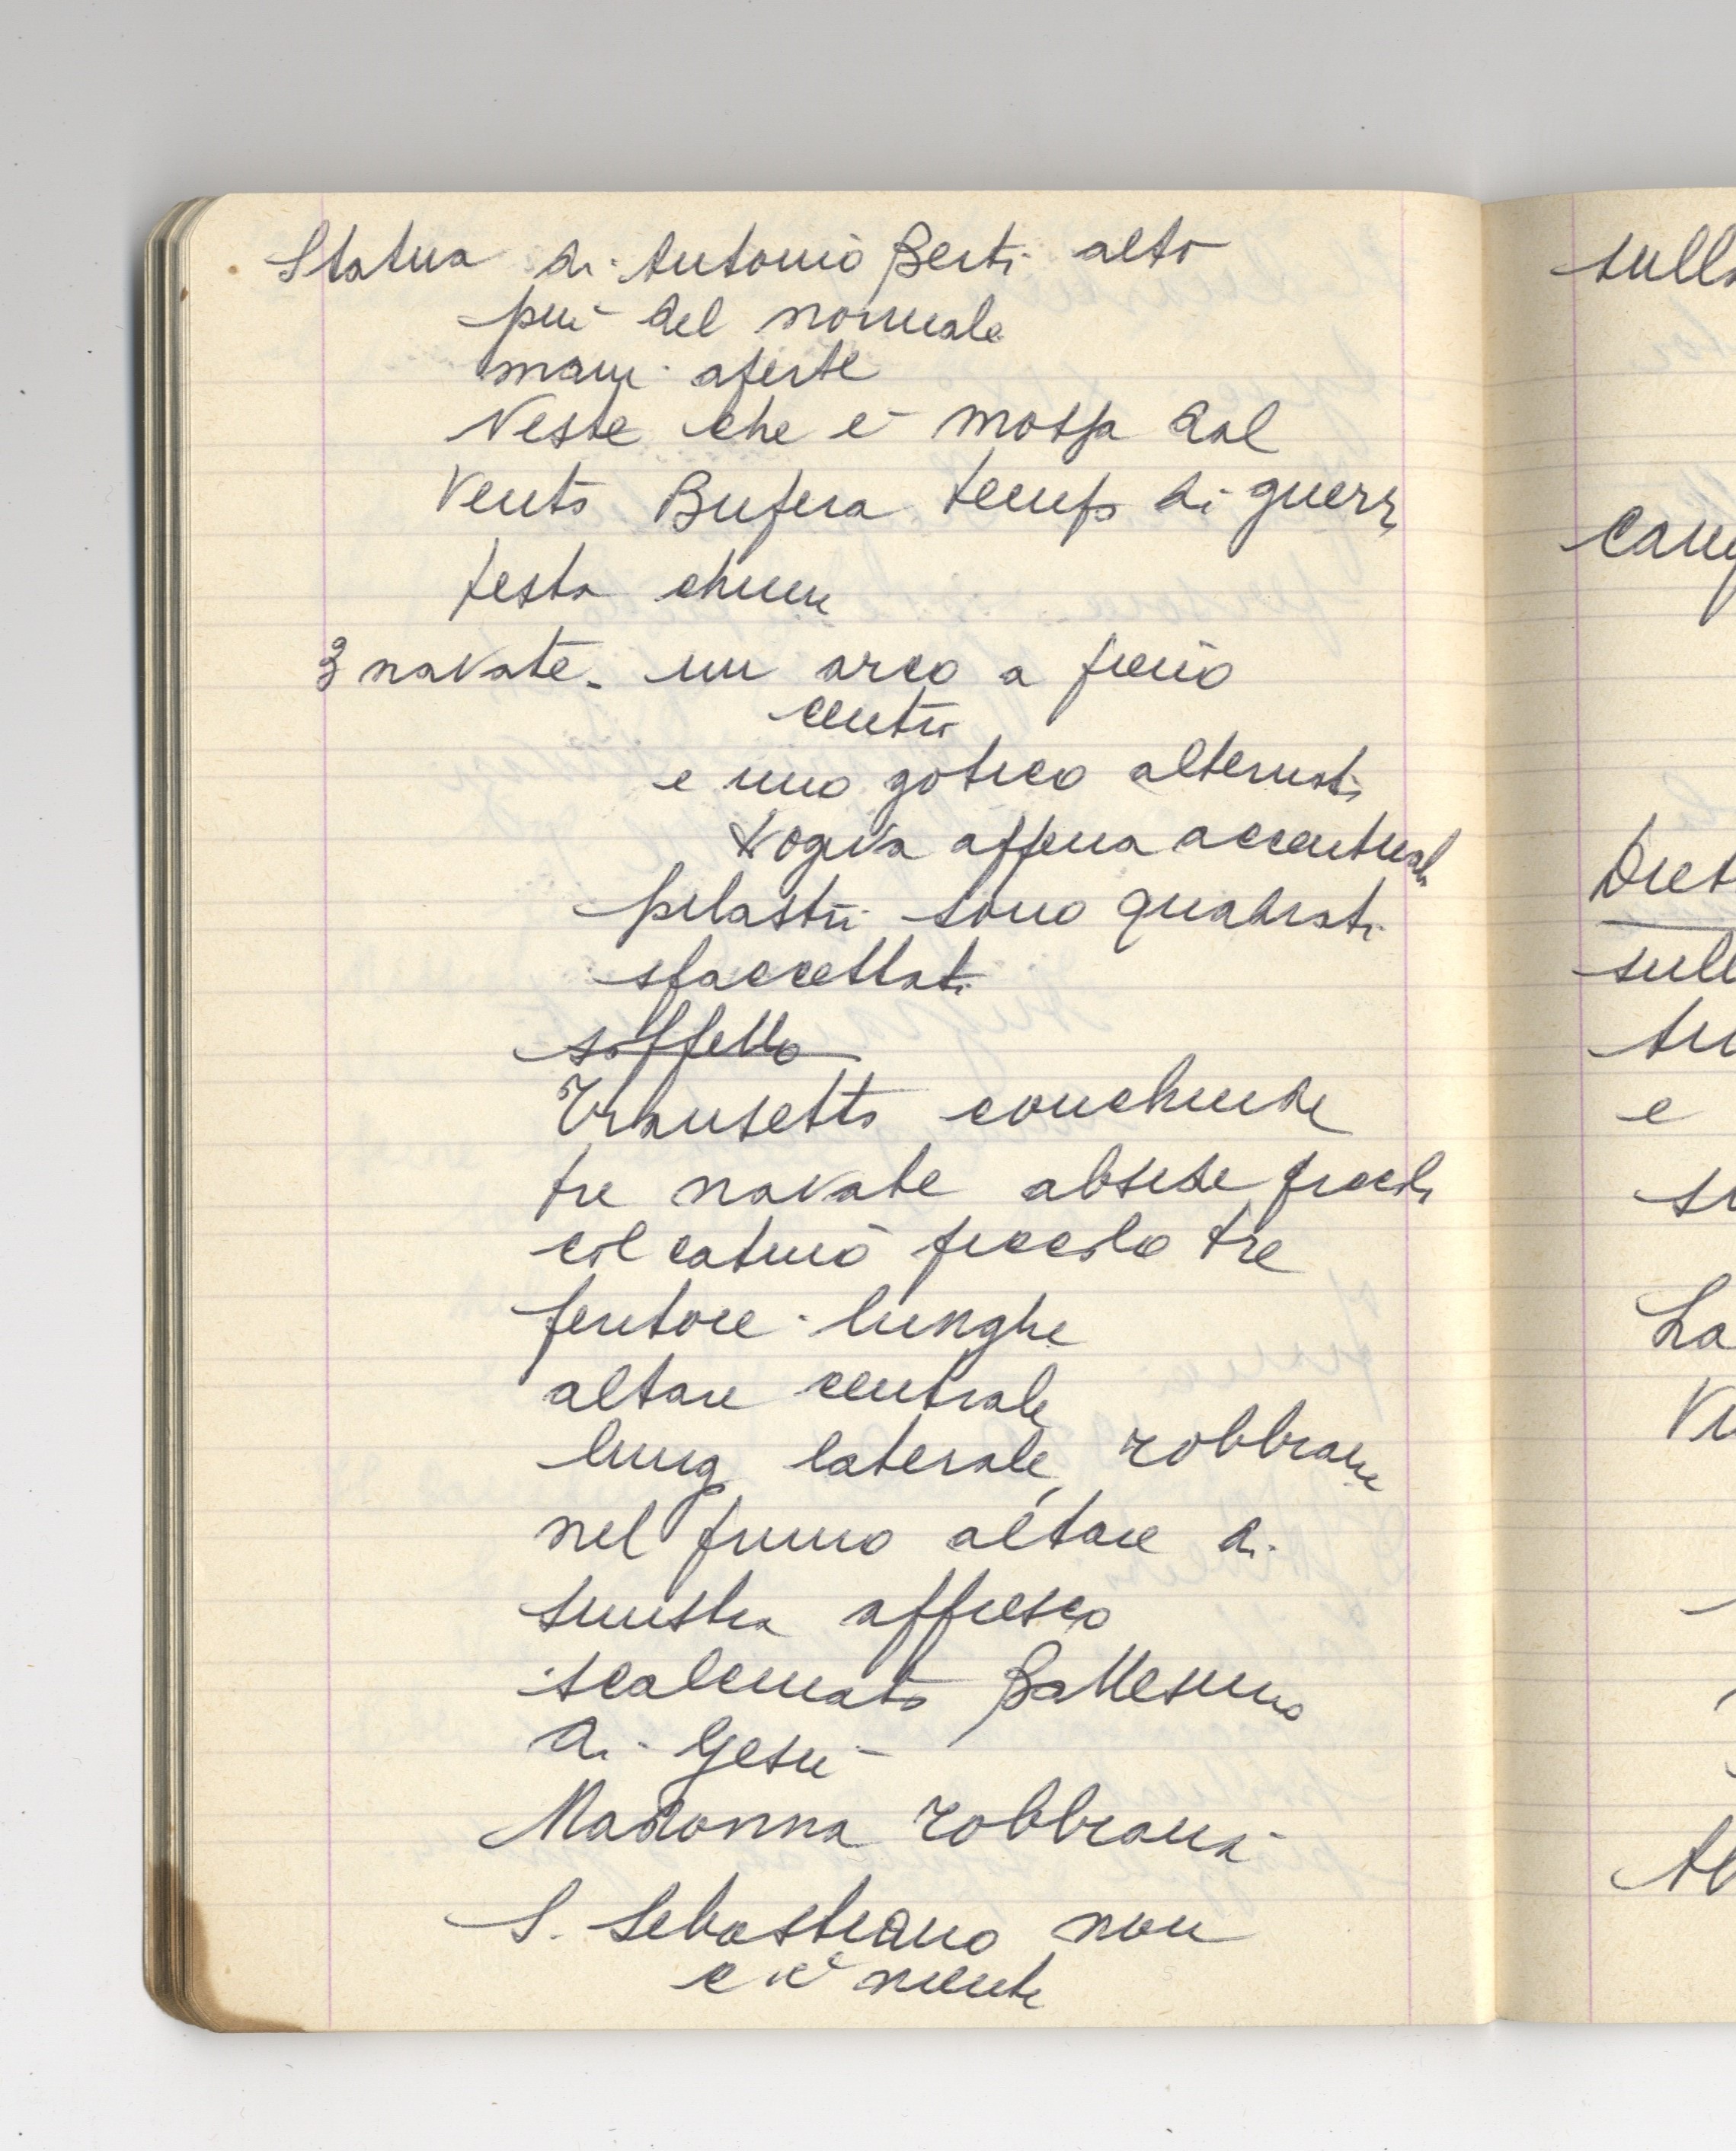 Statua di Antonio Berti alto
più del normale
mani aperte
Veste che è mossa dal
Vento Bufera tempo di guerra
testa china
3 navate - un arco a pieno
centro
e uno gotico alternati
l'ogiva appena accentuata
pilastri sono quadrati
sfaccettati
soffitto
Transetto conchiude
tre navate abside piccola
col catino piccolo tre
feritoie lunghe
altare centrale
lung laterale robbiane
nel primo altare di
sinistra affresco
scalcinato Battesimo
di Gesù
Madonna robbiana
S. Sebastiano non
c'è niente
sull
camp
Diet
sull
su
e
su
La
Vi
Al